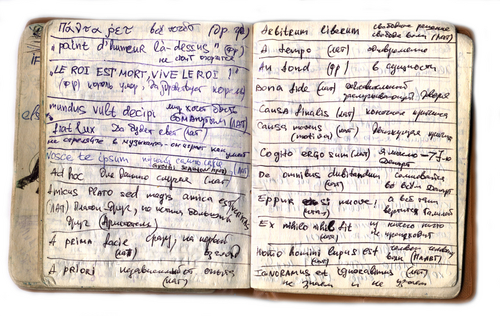 Πάντα ρει всё течёт (др. гр)
"point d'humeur là-dessus" (фр)
не стоит сердиться
"LE ROI EST MORT, VIVE LE ROI!"
(фр) король умер, да здравствует король
mundus vult decipi мир хочет быть
обманутым (лат)
fiat lux Да будет свет (лат)
не стреляйте в музыканта -
Nosce te ipsum познай самого себя
(лат)
Ad hoc Для данного случая (лат)
Amicus Plato sed magis amica est veritas
(лат) Платон друг, но истина
друг (Аристотель)
A prima facie на первый
(лат) взгляд
A priori независимо от опыта
(лат)
Arbitrium liberum свободное решение
свобода воли (лат)
A tempo (лат) одновременно
Au fond (фр) в сущности
Bona fide (лат)
Causa finalis (лат) конечная причина
Causa movens (лат) движущая причина
Cogito ergo sum (лат) Я мыслю
Декарт
De omnibus dubitandum сомневайся
(лат) во всём Декарт
Eppur si muove! а всё-таки
вертится Галилей
Ex nihilo nihil fit из ничего ничто
(лат) не происходит
Homo homini lupus est человек человеку
(лат) волк (Плавт)
Ignoramus et ignorabimus (лат)
не знаем и не узнаем